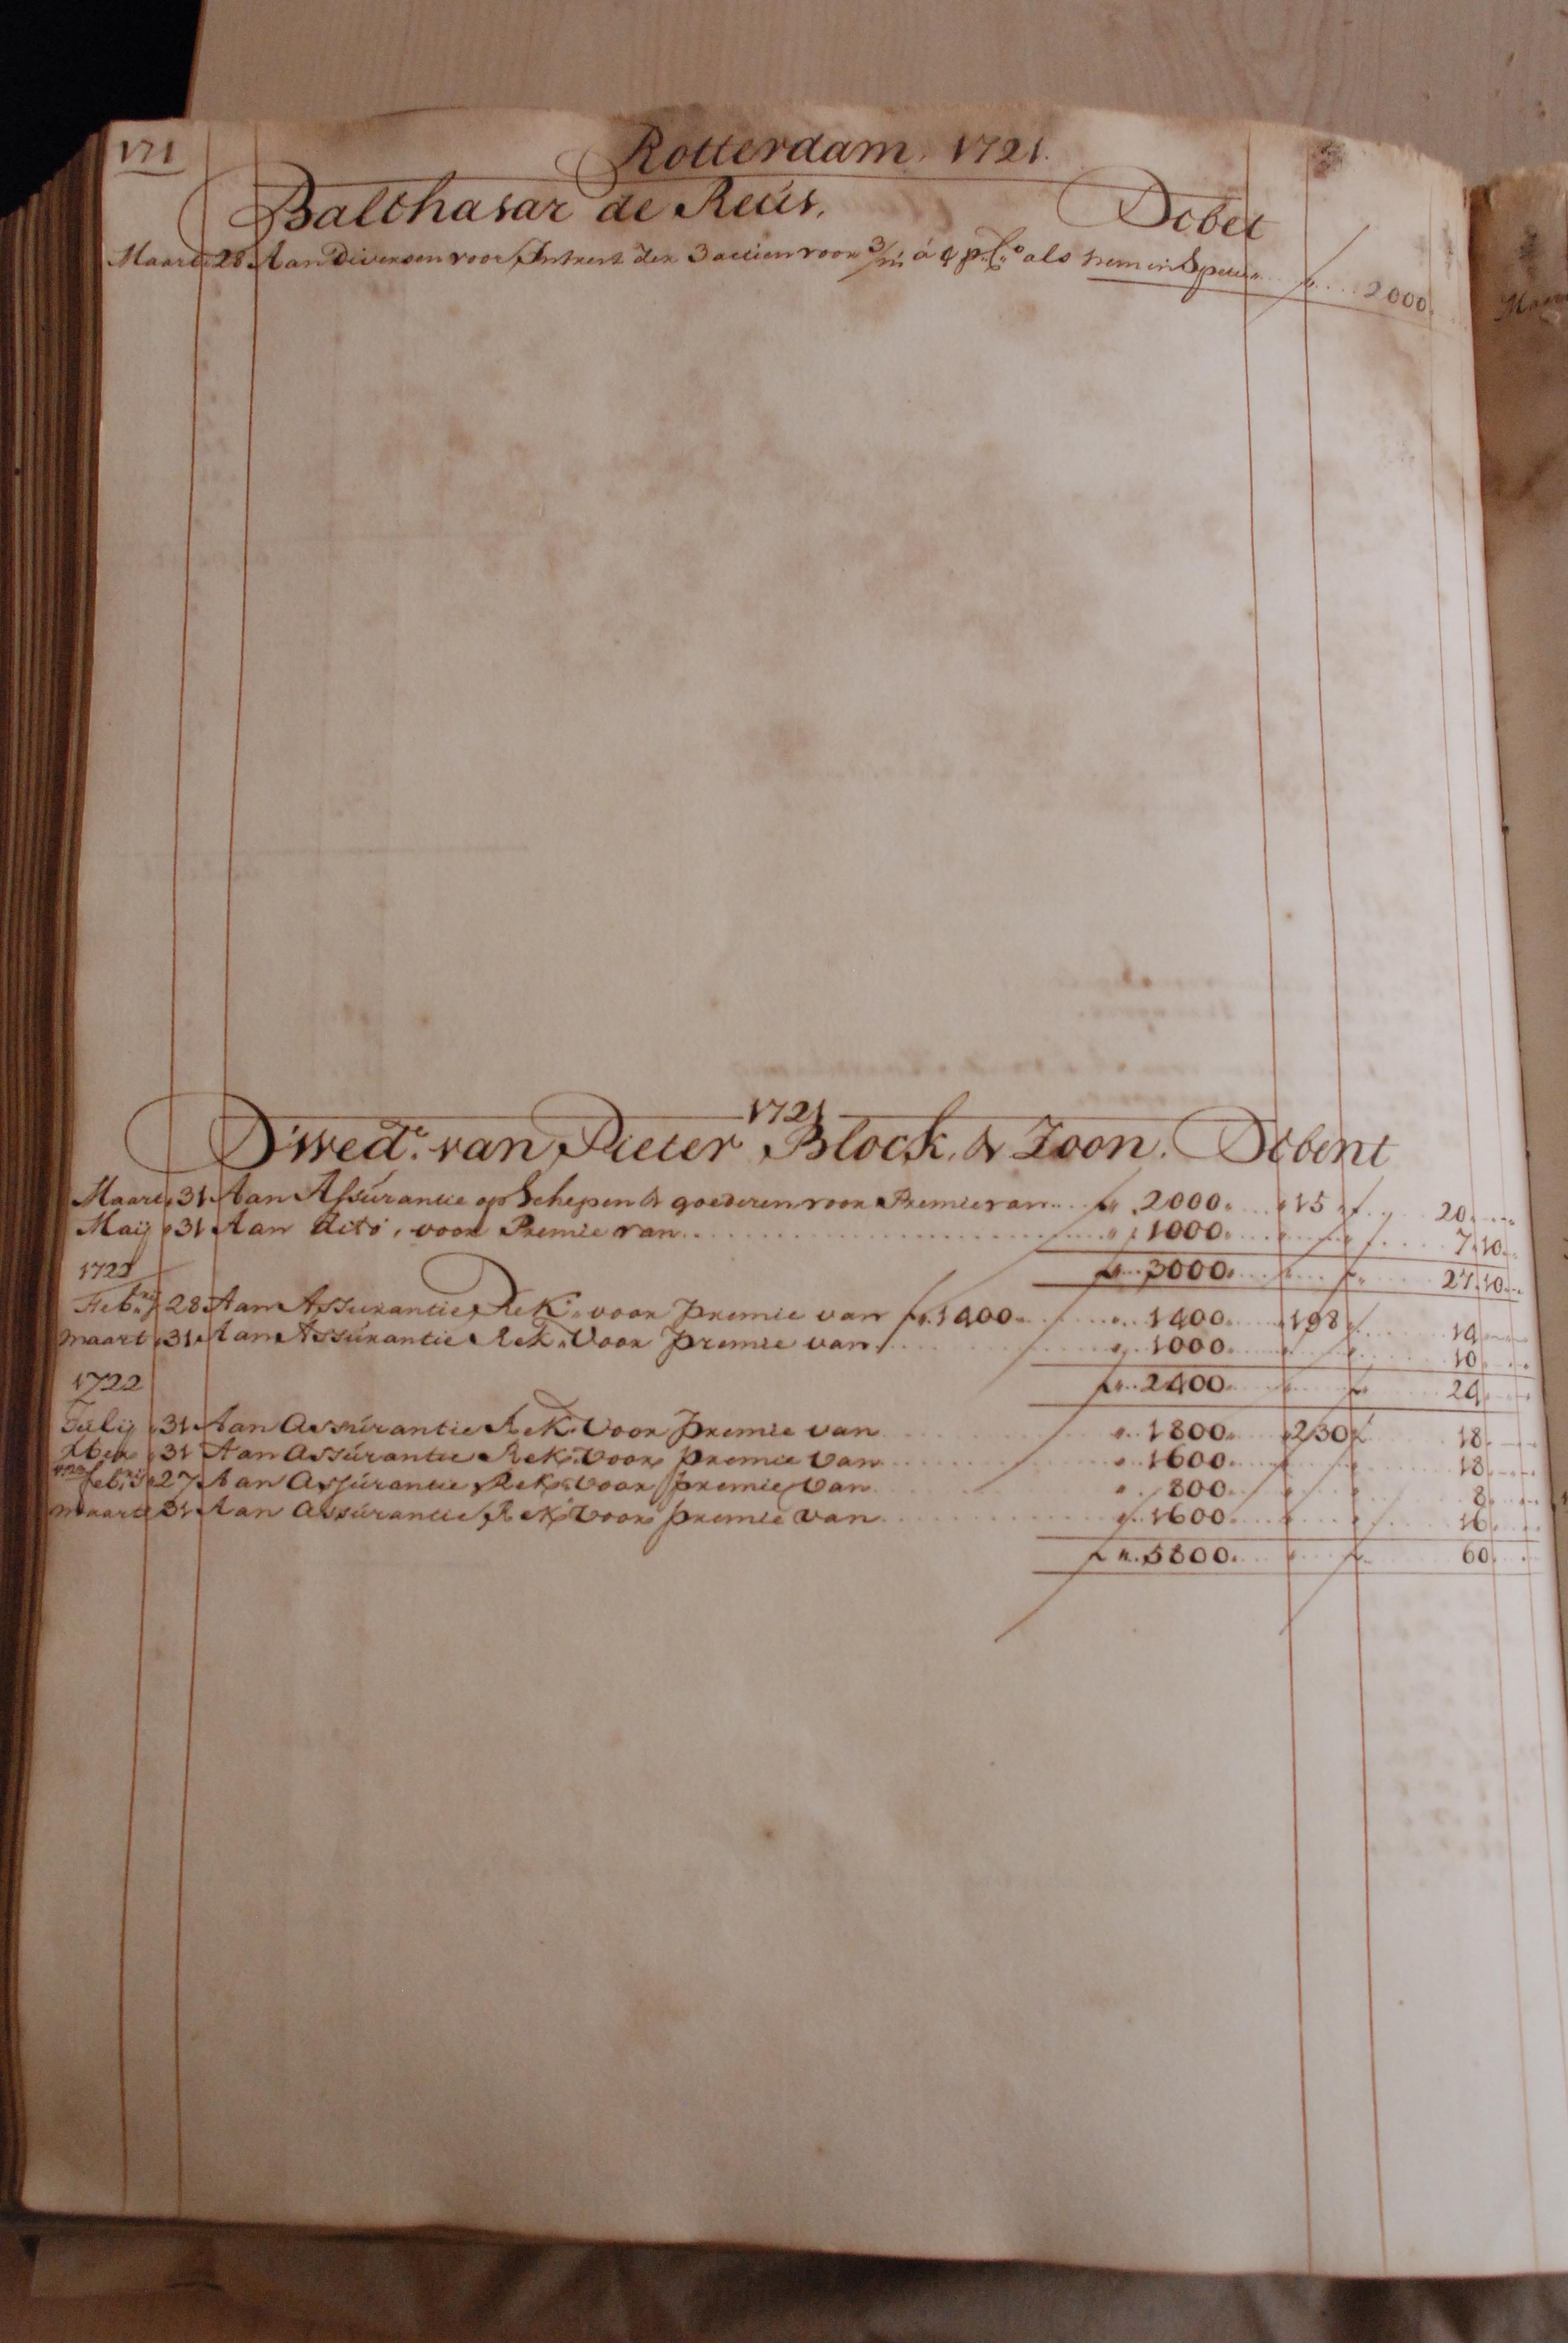 171
Rotterdam. 1721.
Balthasar de Reús, Debet
Maart 28 Aan Diversen voor Intrest der 3 actien voor 3/m á 4 p. C.o als hem in Specie f 2000
1721
D'wed.e van Pieter Block, & Zoon. Debent
Maart 31 Aan Assúrantie op Schepen & goederen voor Premie van f 2000 15 f 20
Maij 31 Aan dito, voor Premie van 1000 7 10
f 3000 f 27 10
1722
Feb.rij 28 Aan Assurantie Rek. voor premie van f 1400 1400 198 f 14
maart 31 Aan Assúrantie Rek. Voor premie van 1000 10
f 2400 f 24
1722
Júlij 31 Aan Assúrantie Rek. Voor premie van 1800 230 f 18
Xber 31 Aan Assúrantie Rek. Voor premie van 1600 18
feb.rij 27 Aan Assúrantie Rek. Voor premie van 800 8
maart 31 Aan Assúrantie Rek. Voor premie van 1600 16
f 5800 f 60